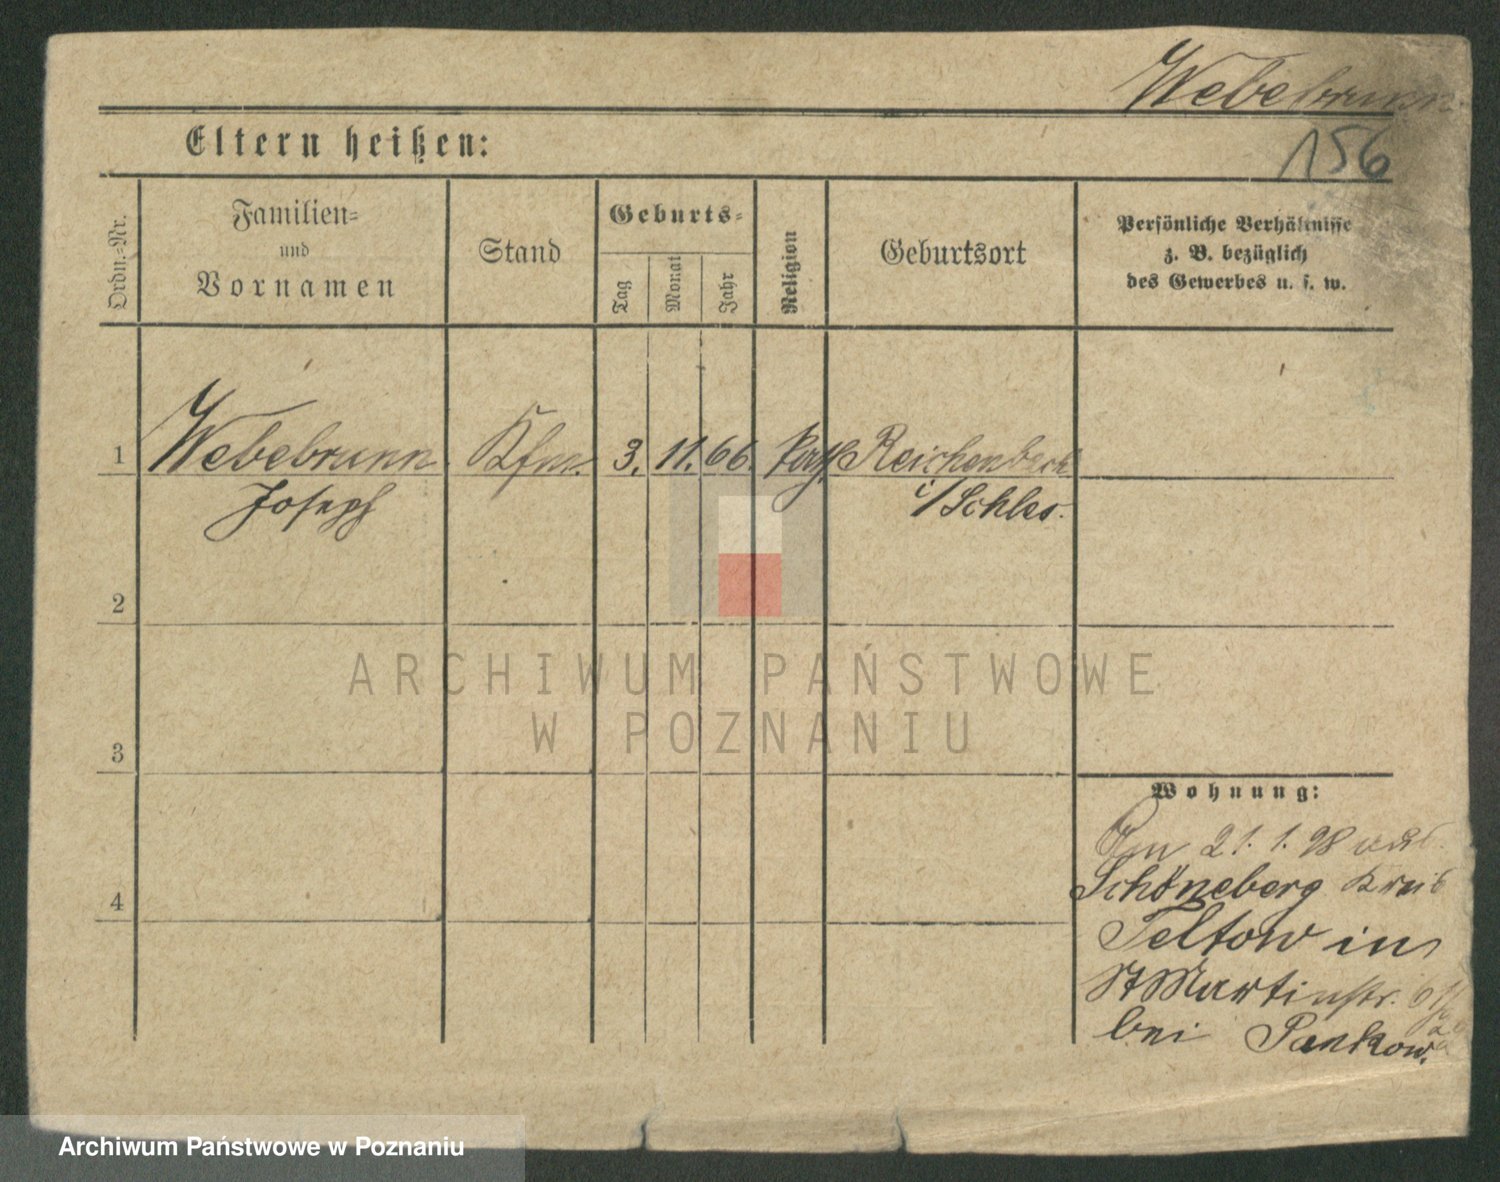 Webebrunn
156
Eltern heißen:
Ordn.-Nr.
Familien-
und
Vornamen
Stand
Geburts-
Tag
Monat
Jahr
Religion
Geburtsort
Persönliche Verhältnisse
z. B. bezüglich
des Gewerbes u. s. w.
1 Webebrunn Kfm. 3. 11. 66. Reichenbach
Joseph i/Schles.
2
ARCHIWUM PAŃSTWOWE
W POZNANIU
3
Wohnung:
Am 21. 1. 98 aus
Schöneberg Kreis
4
Teltow in
St Martinstr.
bei Pankow.
Archiwum Państwowe w Poznaniu